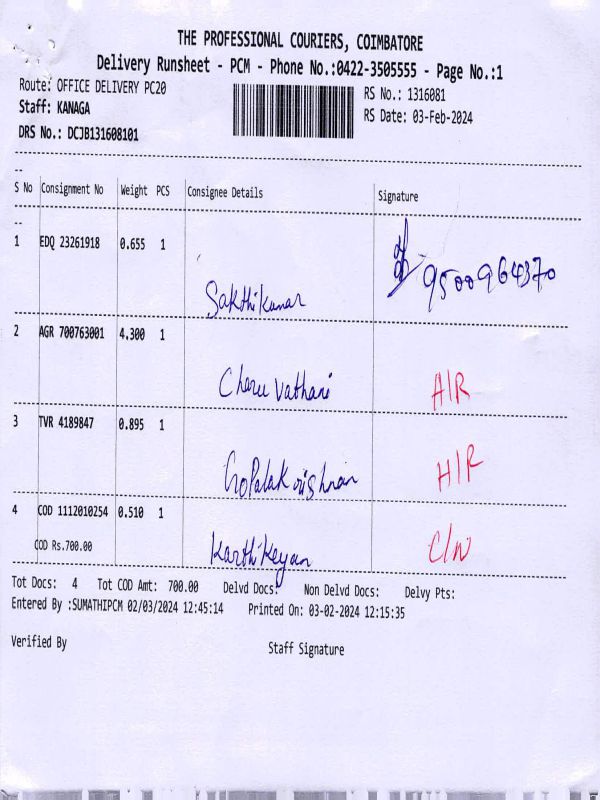 THE PROFESSIONAL COURIERS, COIMBATORE
Delivery Runsheet - PCM - Phone No.:0422-3505555 - Page No.:1
Route: OFFICE DELIVERY PC20 RS No.: 1316081
Staff: KANAGA RS Date: 03-Feb-2024
DRS No.: DCJB131608101
S No Consignment No Weight PCS Consignee Details Signature
1 EDQ 23261918 0.655 1 9500964370
Sakthikumar
2 AGR 700763001 4.300 1
Charu Vathani A/R
3 TVR 4189847 0.895 1
GoPalakrishnan H/R
4 COD 1112010254 0.510 1
COD Rs.700.00 Karthikeyan C/N
Tot Docs: 4 Tot COD Amt: 700.00 Delvd Docs: Non Delvd Docs: Delvy Pts:
Entered By :SUMATHIPCM 02/03/2024 12:45:14 Printed On: 03-02-2024 12:15:35
Verified By Staff Signature